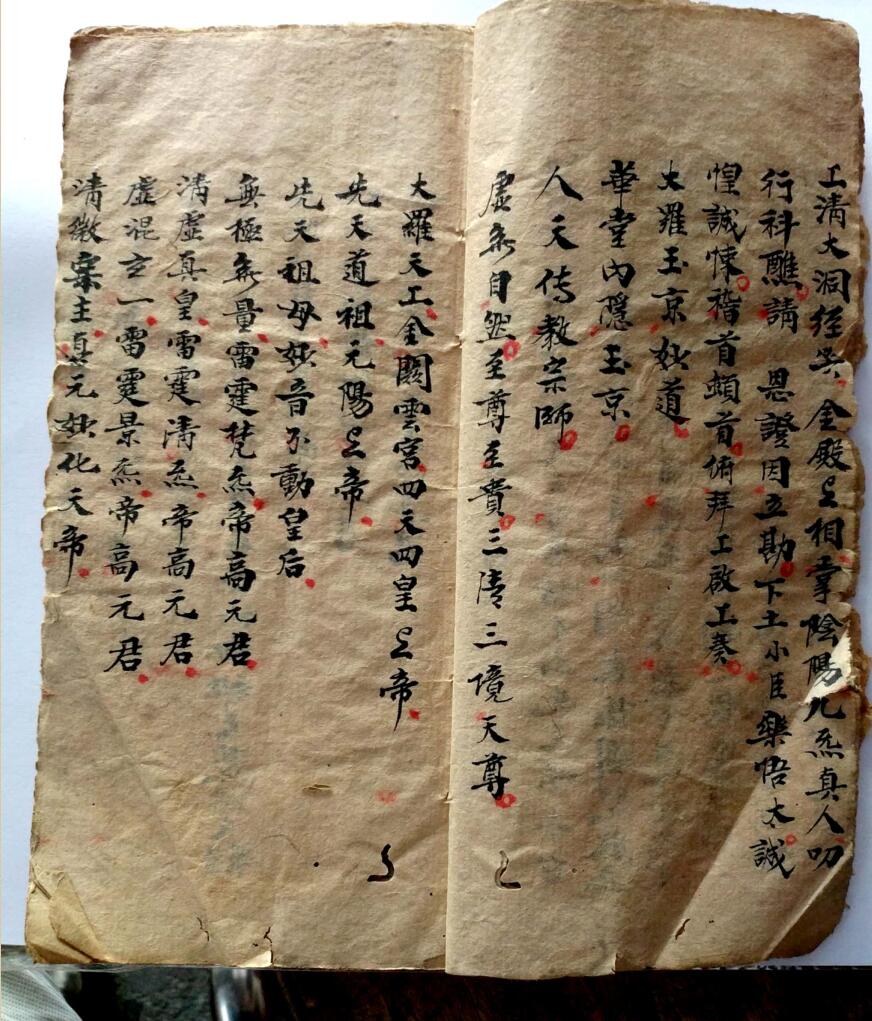 上清大洞經籙金殿上相掌陰陽九炁真人叨
行科醮請 恩證因立勘下土小臣樂悟太誠
惶誠悚稽首頓首俯拜上啟上奏
大羅玉京妙道
華堂內隱玉京
人天傳教宗師
虛無自然至尊至貴三清三境天尊
大羅天上金闕雲宮四天四皇上帝
先天道祖元陽上帝
先天祖母妙音不動皇后
無極無量雷霆梵炁帝高元君
清虛真皇雷霆清炁帝高元君
虛混玄一雷霆景炁帝高元君
清微宗主真元妙化天帝